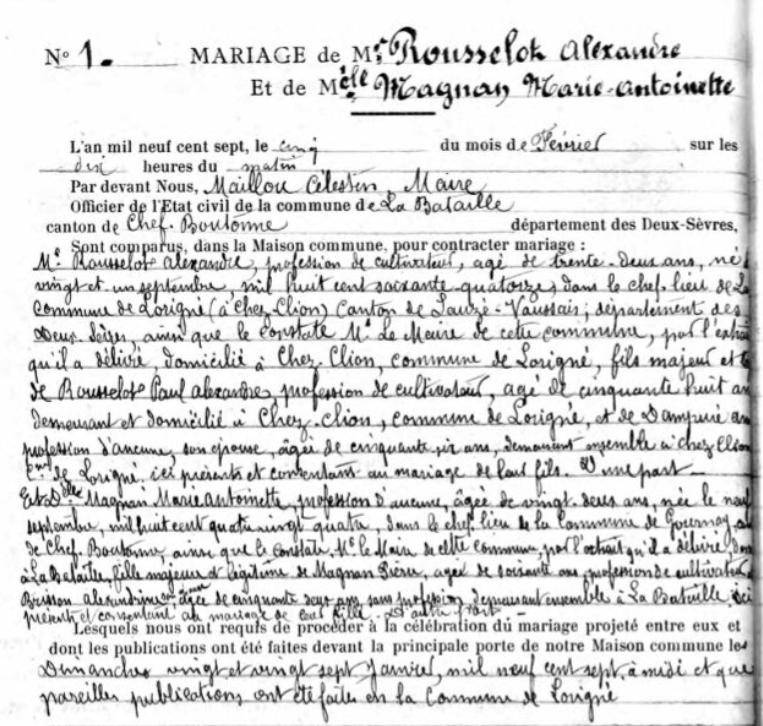 N° 1. MARIAGE de Mr Rousselot Alexandre
Et de Melle Magnan Marie-Antoinette
L'an mil neuf cent sept, le cinq du mois de Février sur les
dix heures du matin
Par devant Nous, Maillou Célestin, Maire
Officier de l'Etat civil de la commune de La Bataille
canton de Chef-Boutonne département des Deux-Sèvres,
Sont comparus, dans la Maison commune, pour contracter mariage :
Mr Rousselot Alexandre, profession de cultivateur, agé de trente-deux ans, né
vingt et un septembre, mil huit cent soixante quatorze, dans le chef-lieu de La
commune de Lorigné (à Chez-Clion) Canton de Sauzé-Vaussais, département des
Deux-Sèvres, ainsi que le constate Mr Le Maire de cette commune, par l'extrait
qu'il a délivré, domicilié à Chez-Clion, commune de Lorigné, fils majeur et
de Rousselot Paul Alexandre, profession de cultivateur, agé de cinquante huit an
demeurant et domicilié à Chez-Clion, commune de Lorigné, et de
profession d'aucune, son épouse, âgée de cinquante six ans, demeurant ensemble à chez Clion
Cne de Lorigné ici présents et consentant au mariage de leur fils. D'une part
Et Delle Magnan Marie Antoinette, profession d'aucune, âgée de vingt-deux ans, née le neuf
septembre, mil huit cent quatre vingt quatre, dans le chef-lieu de la Commune de
de Chef-Boutonne, ainsi que le constate Mr le Maire de cette commune, par l'extrait qu'il a délivré, dom
à La Bataille, fille majeure et légitime de Magnan Pierre, agée de soixante ans, profession de cultivateur
Brisson Alexandrine, agée de cinquante deux ans, sans profession, demeurant ensemble à La Bataille, ici
présents et consentant au mariage de leur fille. D'autre part
Lesquels nous ont requis de procéder à la célébration du mariage projeté entre eux et
dont les publications ont été faites devant la principale porte de notre Maison commune les
Dimanches vingt et vingt sept Janvier, mil neuf cent sept, à midi et que
pareilles publications ont été faites en la Commune de Lorigné